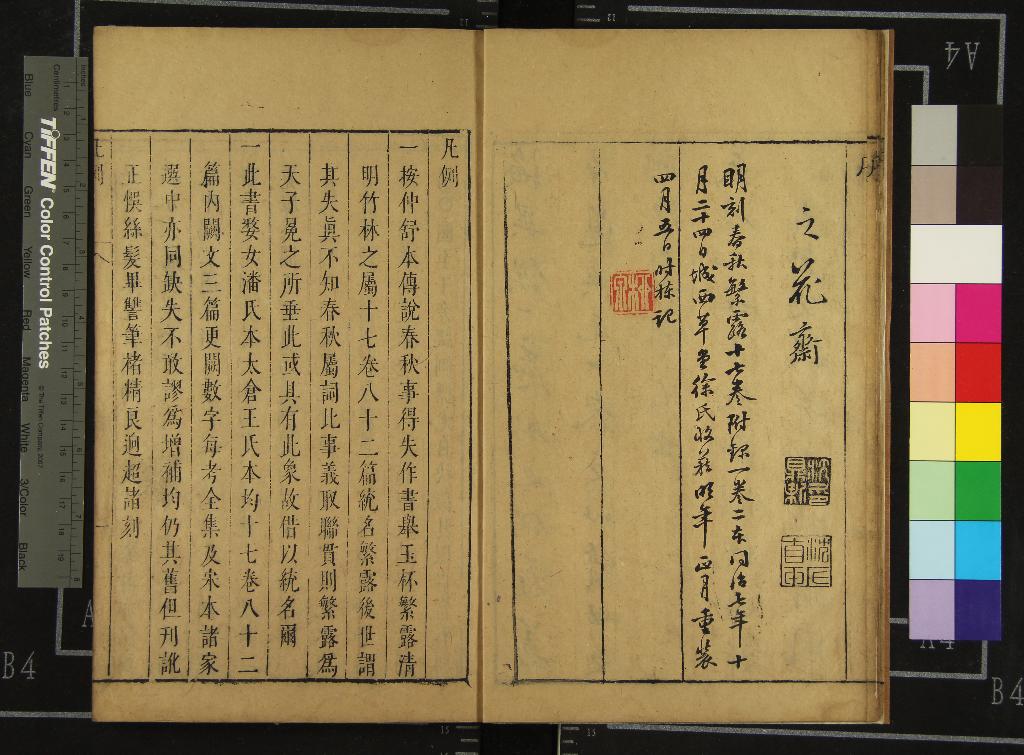 之花齋
明刻春秋繁露十七卷附錄一卷二本同治七年十
月二十四日城西草堂徐氏收藏明年正月重裝
四月五日時棟記
凡例
一按仲舒本傳說春秋事得失作書舉玉杯繁露清
明竹林之屬十七卷八十二篇統名繁露後世謂
其失真不知春秋屬詞比事義取聯貫則繁露爲
天子冕之所垂此或具有此象故借以統名爾
一此書婺女潘氏本太倉王氏本均十七卷八十二
篇內闕文三篇更闕數字每考全集及宋本諸家
選中亦同缺失不敢謬爲增補均仍其舊但刊訛
正悞絲髮畢讐筆楮精良迥超諸刻
凡例
TIFFEN Color Control Patches
© The Tiffen Company, 2007
Centimetres
Inches
Blue Cyan Green Yellow Red Magenta White 3/Color Black
A4
B4
A4
B4